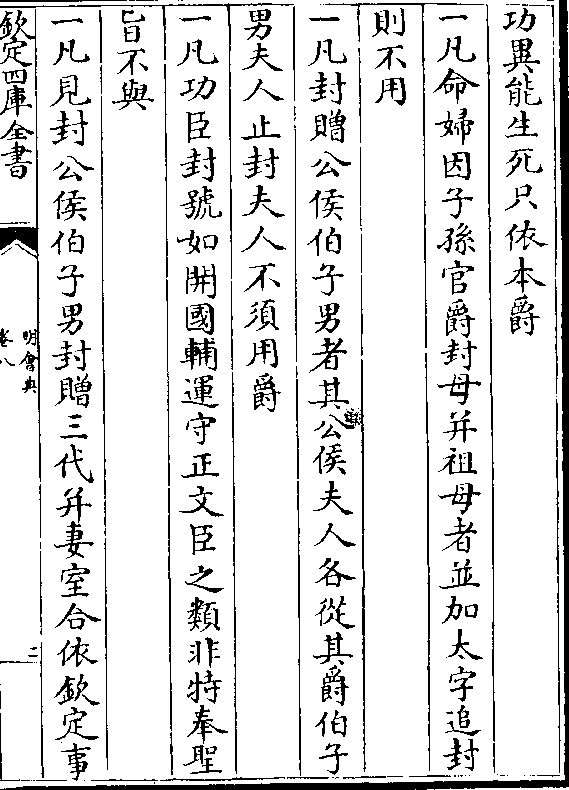 功異能生死只依本爵
一凡命婦因子孫官爵封母并祖母者並加太字追封
則不用
一凡封贈公侯伯子男者其公侯夫人各從其爵伯子
男夫人止封夫人不須用爵
一凡功臣封號如開國輔運守正文臣之類非特奉聖
旨不與
一凡見封公侯伯子男封贈三代并妻室合依欽定事
欽定四庫全書
明會典
卷八
三